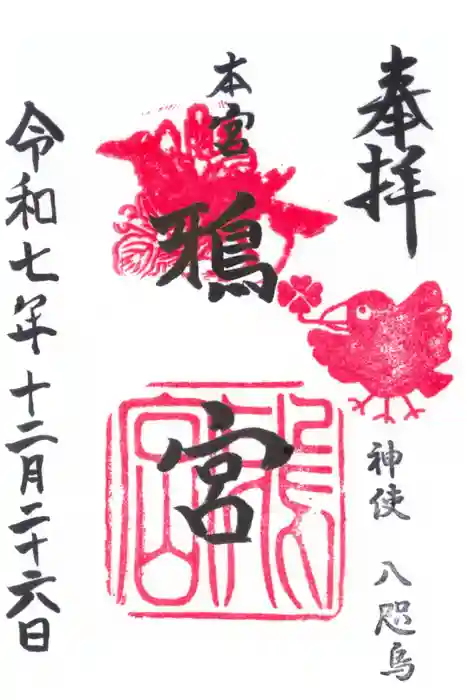 奉拝
神使 八咫烏
本宮
鴉宮
令和七年十二月二十六日
鴉宮